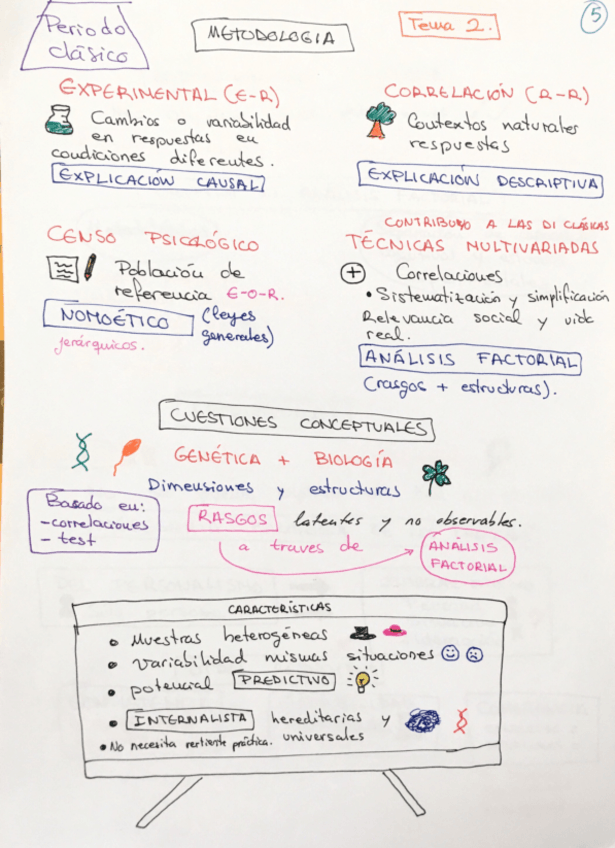 Periodo
clásico
METODOLOGIA
Tema 2.
5
EXPERIMENTAL (E-R)
Cambios o variabilidad
en respuestas en
condiciones diferentes.
EXPLICACIÓN CAUSAL
CORRELACIÓN (R-R)
Contextos naturales
respuestas
EXPLICACIÓN DESCRIPTIVA
CENSO PSICOLÓGICO
Población de
referencia E-O-R.
NOMOÉTICO (leyes
generales)
jerárquicos.
CONTRIBUYO A LAS DI CLÁSICAS
TÉCNICAS MULTIVARIADAS
+ Correlaciones
• Sistematización y simplificación
Relevancia social y vida
real.
ANÁLISIS FACTORIAL
(rasgos + estructuras).
CUESTIONES CONCEPTUALES
GENÉTICA + BIOLOGÍA
Dimensiones y estructuras
Basado en:
- correlaciones
- test
RASGOS latentes y no observables.
a traves de
ANÁLISIS
FACTORIAL
CARACTERÍSTICAS
• Muestras heterogéneas
• variabilidad mismas situaciones
• potencial PREDICTIVO
• INTERNALISTA hereditarias y
universales
• No necesita vertiente práctica.